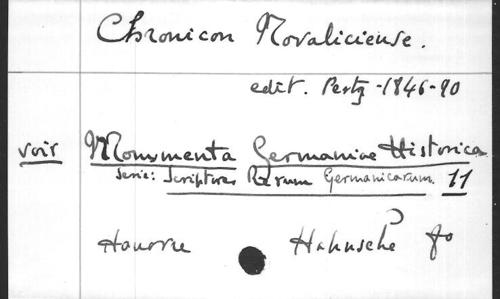 Chronicon Novaliciense.
edit. Pertz - 1846-90
voir Monumenta Germaniae Historica
serie: Scriptores Rerum Germanicarum. 11
Hanovre Hahnsche fo